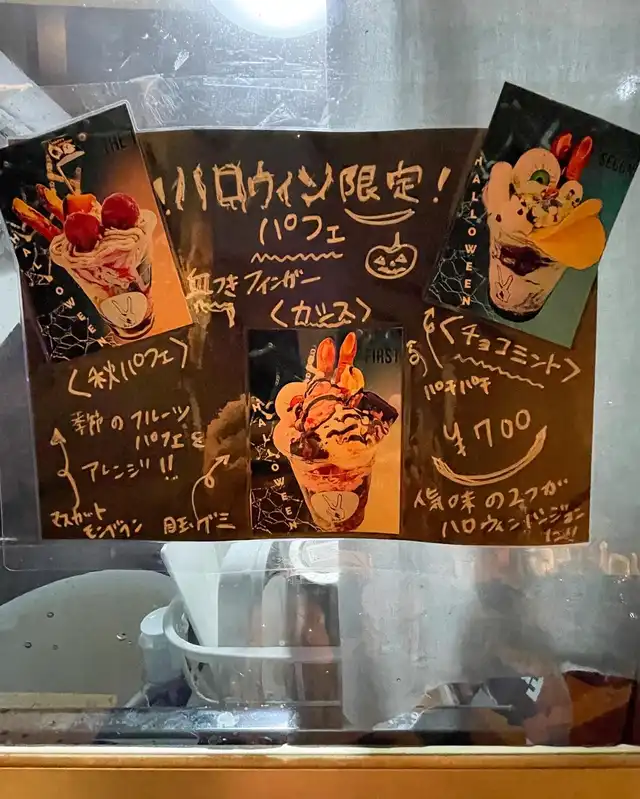 THE
HALLOWEEN
!ハロウィン限定!
パフェ
血つきフィンガー
SECOND
HALLOWEEN
<秋パフェ>
季節のフルーツ
パフェを
アレンジ!!
マスカット
モンブラン
目玉グミ
FIRST
HALLOWEEN
<チョコミント>
パチパチ
¥700
人気味の2つが
ハロウィンバージョン